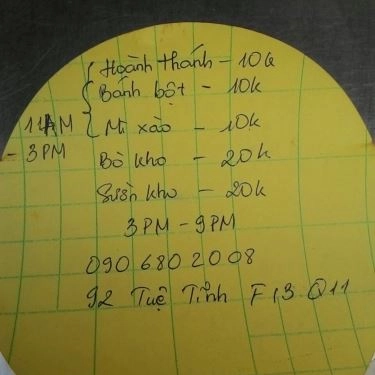 Hoành thánh - 10k
Bánh bột - 10k
11AM
Mì xào - 10k
- 3PM
Bò kho - 20k
Sườn kho - 20k
3PM - 9PM
090 680 2008
92 Tuệ Tĩnh F13 Q11